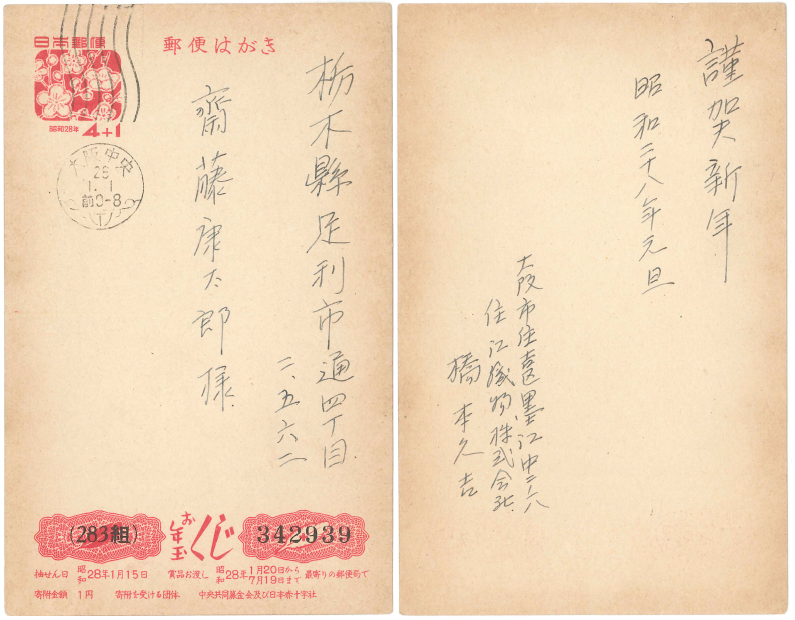 日本郵便
郵便はがき
昭和28年
4+1
大阪中央
28
1.1
前0-8
栃木縣足利市通四丁目
二、五六二
齋藤康太郎様
(283組)
お年玉くじ
342939
抽せん日 昭和28年1月15日 賞品お渡し 昭和28年1月20日から7月19日まで 最寄りの郵便局で
寄附金額 1円 寄附を受ける団体 中央共同募金会及び日本赤十字社
謹賀新年
昭和二十八年元旦
大阪市住吉区墨江中二ノ六
住江織物株式会社
橋本久吉